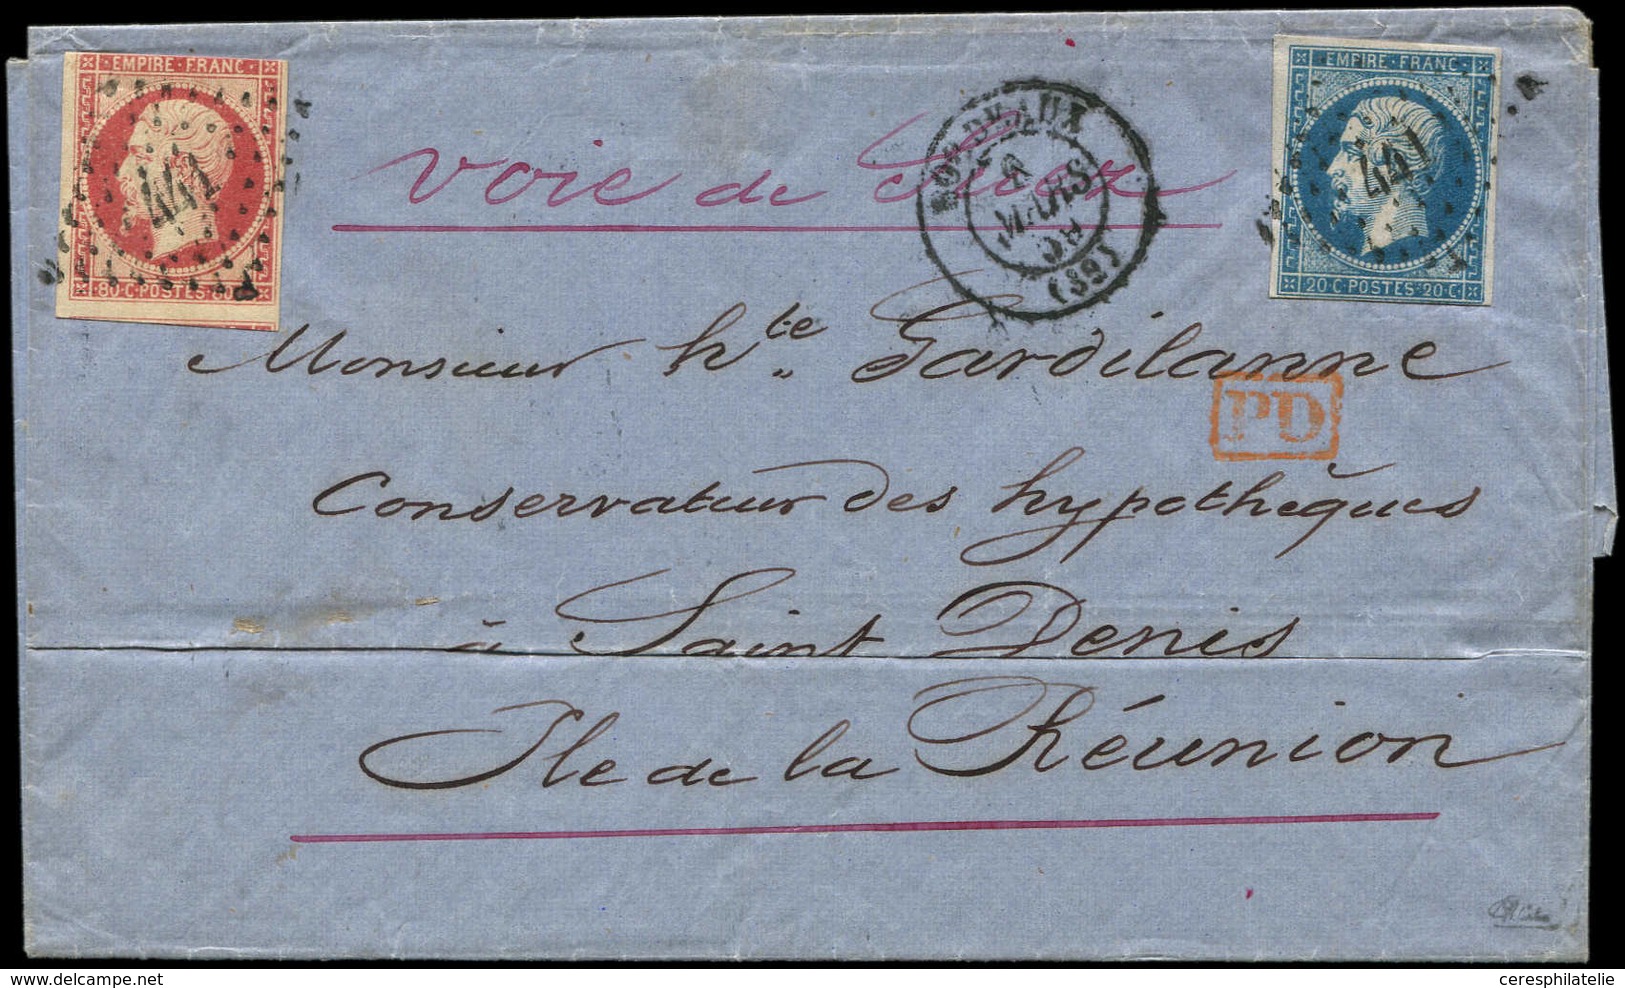 EMPIRE · FRANC ·
441
80 · C · POSTES · 80
voie de Suez
BORDEAUX
MARS
(32)
EMPIRE · FRANC ·
441
20 · C · POSTES · 20 · C ·
Monsieur hte Gardilanne
PD
Conservateur des hypothèques
à Saint Denis
Ile de la Réunion
ceresphilatelie